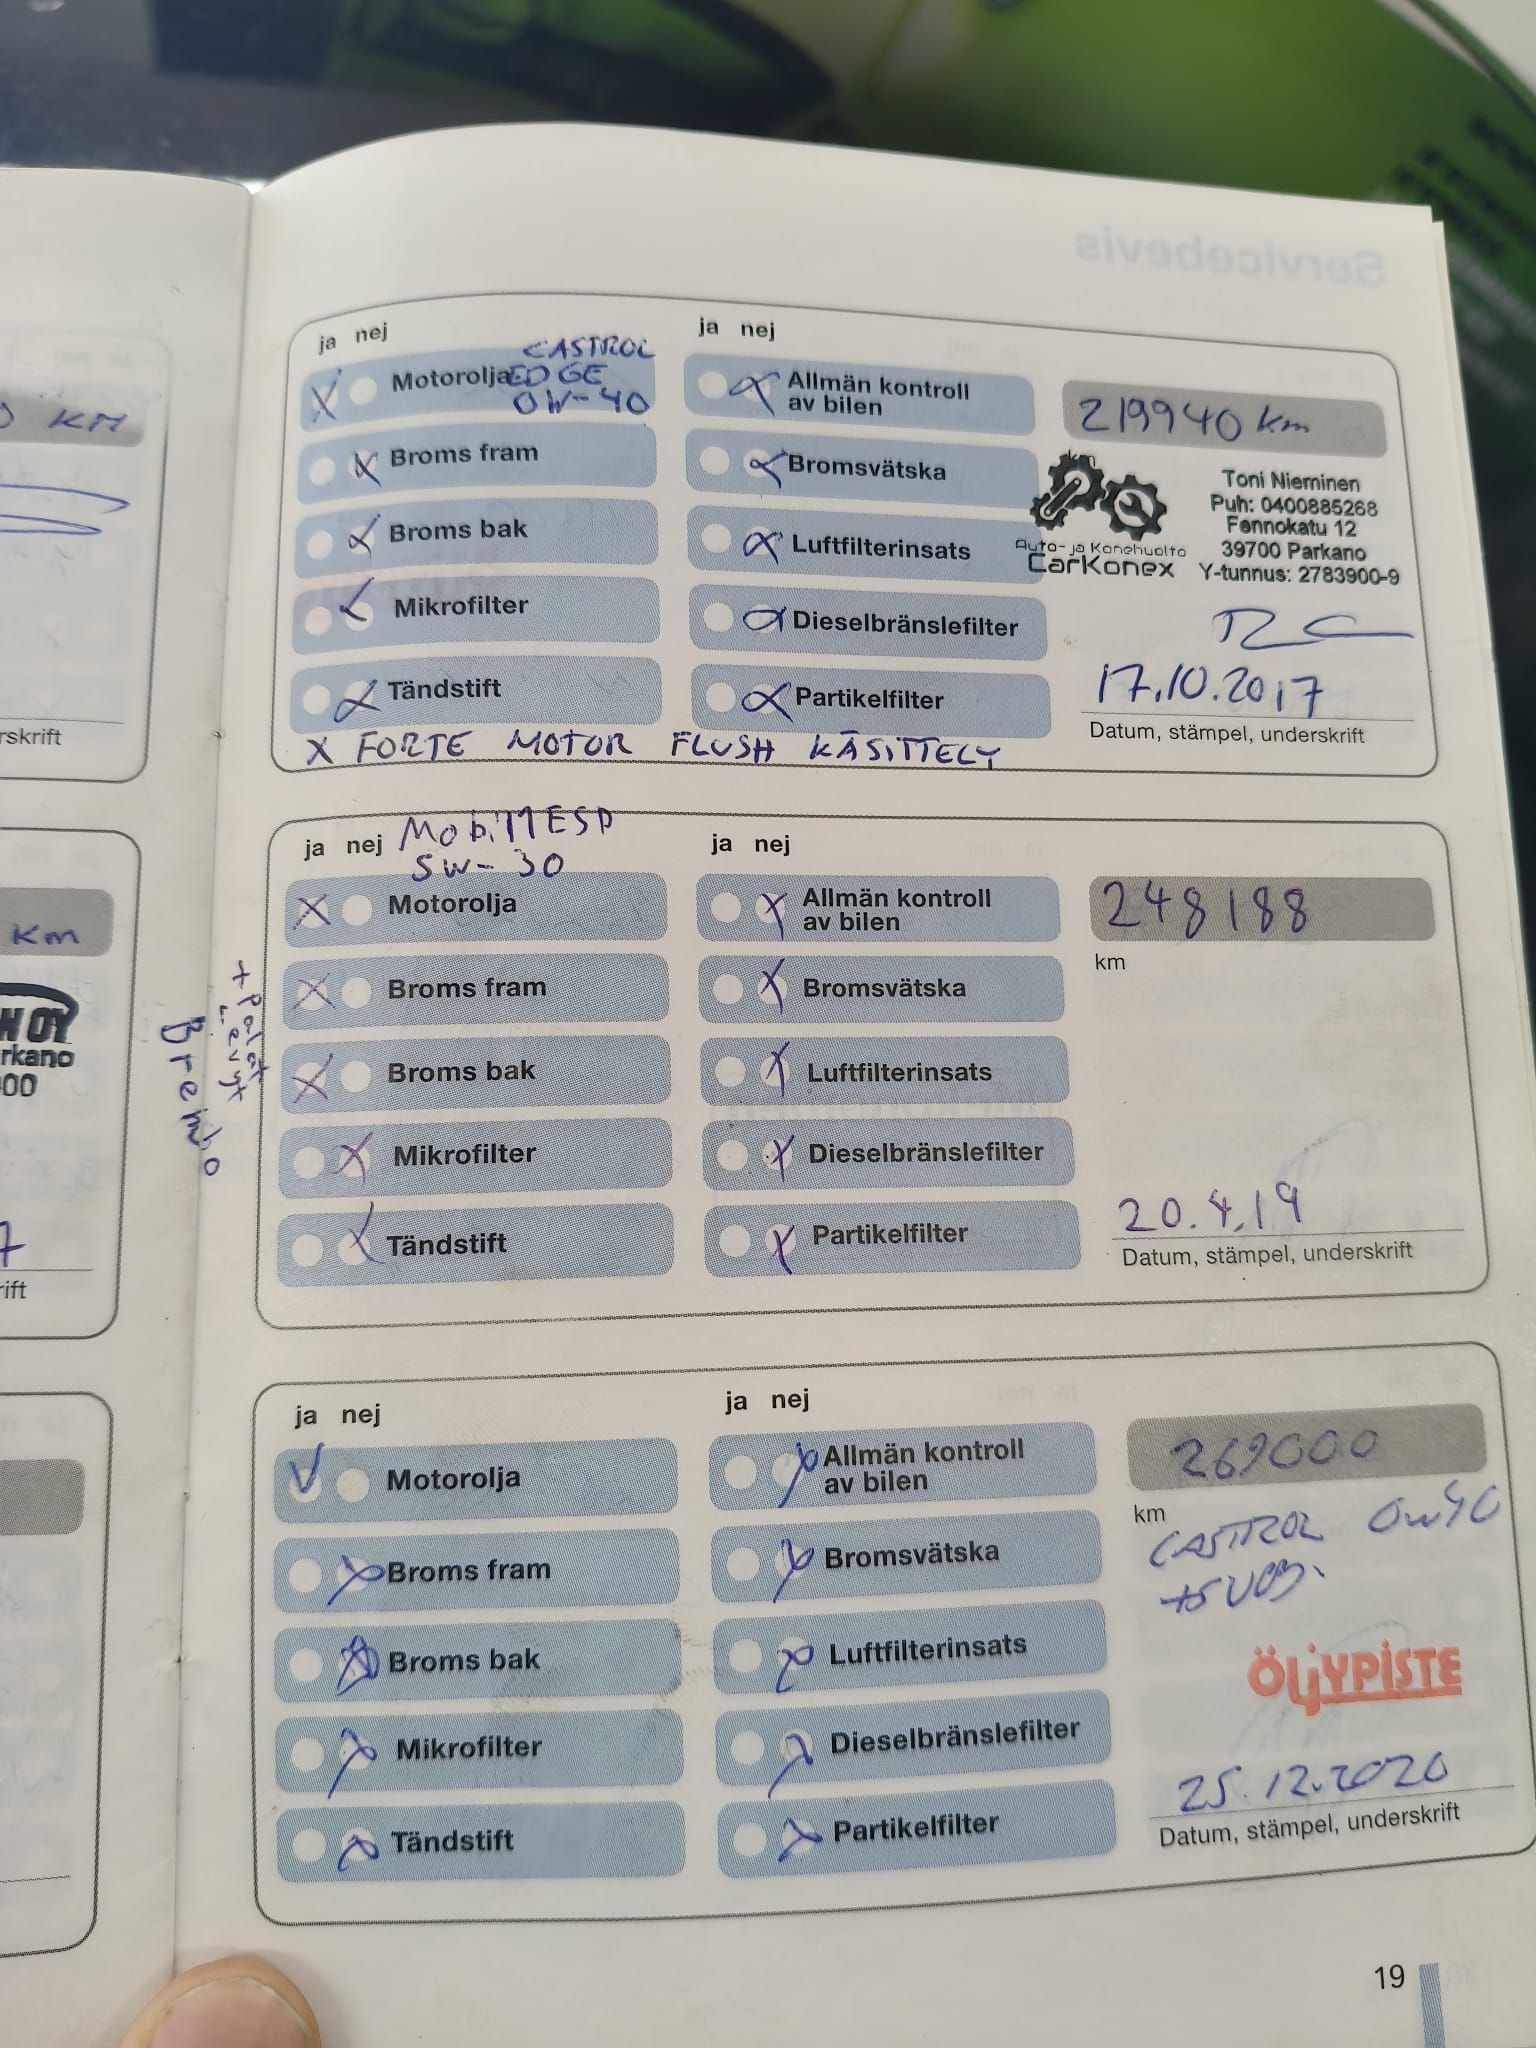 Servicebevis
KM
rskrift
km
N OY
rkano
00
7
rift
ja nej
CASTROL
Motorolja EDGE
0W-40
Broms fram
Broms bak
Mikrofilter
Tändstift
ja nej
Allmän kontroll
av bilen
Bromsvätska
Luftfilterinsats
Dieselbränslefilter
Partikelfilter
219940 km
km
Auto- ja Konehuolto
CarKonex
Toni Nieminen
Puh: 0400885268
Fennokatu 12
39700 Parkano
Y-tunnus: 2783900-9
17.10.2017
Datum, stämpel, underskrift
X FORTE MOTOR FLUSH KÄSITTELY
ja nej
Mobil 1 ESP
5W-30
Motorolja
Broms fram
Broms bak
Mikrofilter
Tändstift
+ Palat
Levyt
Brembo
ja nej
Allmän kontroll
av bilen
Bromsvätska
Luftfilterinsats
Dieselbränslefilter
Partikelfilter
248188
km
20.4.19
Datum, stämpel, underskrift
ja nej
Motorolja
Broms fram
Broms bak
Mikrofilter
Tändstift
ja nej
Allmän kontroll
av bilen
Bromsvätska
Luftfilterinsats
Dieselbränslefilter
Partikelfilter
269000
km
CASTROL 0W40
ÖLJYPISTE
25.12.2020
Datum, stämpel, underskrift
19